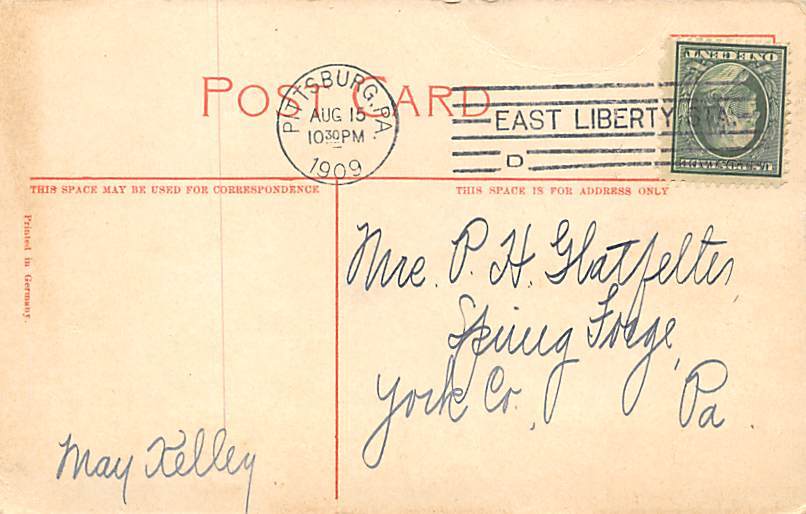 POST CARD
PITTSBURG, PA.
AUG 15
10 30 PM
1909
EAST LIBERTY STA.
D
ONE CENT
THIS SPACE MAY BE USED FOR CORRESPONDENCE
THIS SPACE IS FOR ADDRESS ONLY
Printed in Germany.
Mrs. P. H. Glatfelter,
Spring Forge,
York Co., Pa.
May Kelley